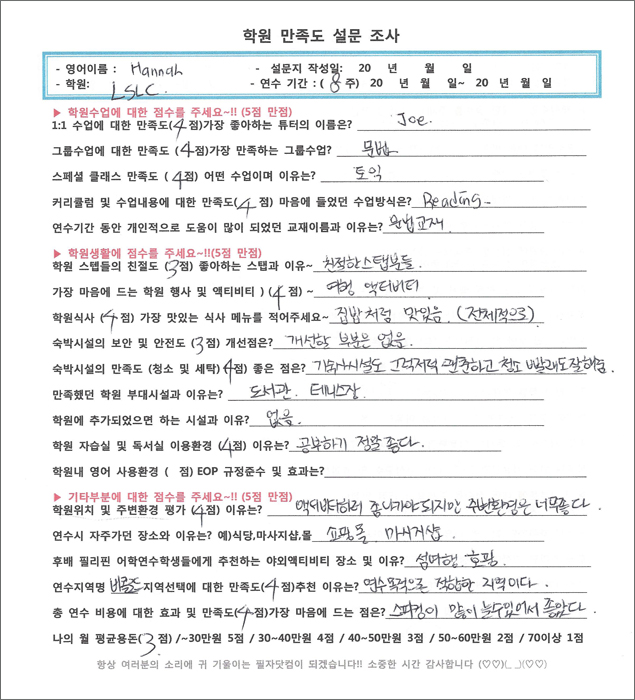 학원 만족도 설문 조사
- 영어이름 : Hannah - 설문지 작성일: 20 년 월 일
- 학원: LSLC. - 연수 기간 : ( 8 주) 20 년 월 일~ 20 년 월 일
▶ 학원수업에 대한 점수를 주세요~!! (5점 만점)
1:1 수업에 대한 만족도(4점)가장 좋아하는 튜터의 이름은? Joe.
그룹수업에 대한 만족도 (4점)가장 만족하는 그룹수업? 문법
스페셜 클래스 만족도 (4점) 어떤 수업이며 이유는? 토익
커리큘럼 및 수업내용에 대한 만족도(4점) 마음에 들었던 수업방식은? Reading
연수기간 동안 개인적으로 도움이 많이 되었던 교재이름과 이유는? 문법교재
▶ 학원생활에 점수를 주세요~!!(5점 만점)
학원 스텝들의 친절도 (3점) 좋아하는 스탭과 이유~ 친절한스탭분들.
가장 마음에 드는 학원 행사 및 액티비티 ) (4점) ~ 여행 액티비티
학원식사 (4점) 가장 맛있는 식사 메뉴를 적어주세요~ 집밥처럼 맛있음 (전체적으로)
숙박시설의 보안 및 안전도 (3점) 개선점은? 개선할 부분은 없음.
숙박시설의 만족도 (청소 및 세탁) (4점) 좋은 점은? 기숙사시설도 그럭저럭 괜춘하고 청소 빨래도잘해줌.
만족했던 학원 부대시설과 이유는? 도서관. 테니스장.
학원에 추가되었으면 하는 시설과 이유? 없음.
학원 자습실 및 독서실 이용환경 (4점) 이유는? 공부하기 정말좋다.
학원내 영어 사용환경 ( 점) EOP 규정준수 및 효과는?
▶ 기타부분에 대한 점수를 주세요~!! (5점 만점)
학원위치 및 주변환경 평가 (4점) 이유는? 액티비티하러 좀나가야되지만 주변환경은 너무좋다.
연수시 자주가던 장소와 이유는? 예)식당,마사지샵,몰 쇼핑몰 마사지샵
후배 필리핀 어학연수학생들에게 추천하는 야외액티비티 장소 및 이유? 섬여행. 호핑.
연수지역명 지역선택에 대한 만족도(4점)추천 이유는? 연수목적으로 적합한 지역이다.
총 연수 비용에 대한 효과 및 만족도(4점)가장 마음에 드는 점은? 스피킹이 많이 늘수있어서 좋았다.
나의 월 평균용돈(3점) /~30만원 5점 / 30~40만원 4점 / 40~50만원 3점 / 50~60만원 2점 / 70이상 1점
항상 여러분의 소리에 귀 기울이는 필자닷컴이 되겠습니다!! 소중한 시간 감사합니다 (♡♡)(_ _)(♡♡)